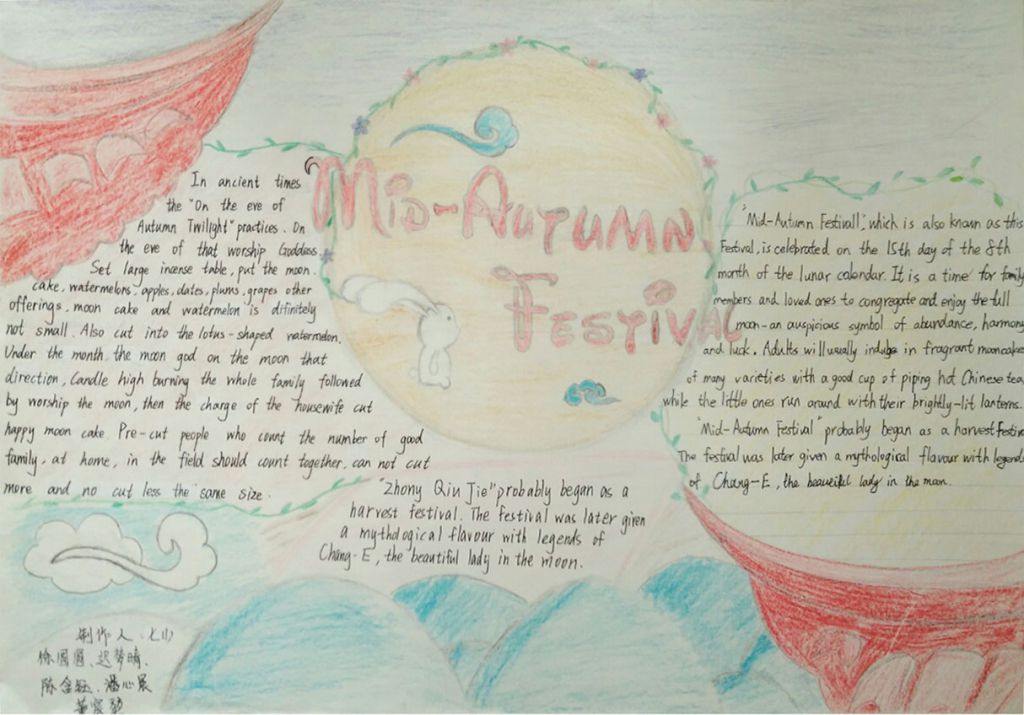 Mid-Autumn
Festival
In ancient times
the "On the eve of
Autumn Twilight" practices. On
the eve of that worship Goddess.
Set large incense table, put the moon
cake, watermelons, apples, dates, plums, grapes other
offerings, moon cake and watermelon is difinitely
not small. Also cut into the lotus-shaped watermelon.
Under the month, the moon god on the moon that
direction, Candle high burning the whole family followed
by worship the moon, then the charge of the housewife cut
happy moon cake. Pre-cut people who count the number of good
family, at home, in the field should count together, can not cut
more and no cut less the same size.
"Zhony Qiu Jie" probably began as a
harvest festival. The festival was later given
a mythological flavour with legends of
Chang-E, the beautiful lady in the moon.
"Mid-Autumn Festivall", which is also known as this
Festival, is celebrated on the 15th day of the 8th
month of the lunar calendar. It is a time for family
members and loved ones to congregate and enjoy the full
moon-an auspicious symbol of abundance, harmony
and luck. Adults will usually indulge in fragrant mooncakes
of many varieties with a good cup of piping hot Chinese tea,
while the little ones run around with their brightly-lit lanterns.
"Mid-Autumn Festival" probably began as a harvest festiv
The festival was later given a mythological flavour with legends
of Chang-E, the beautiful lady in the moon.
制作人：七(1)
徐圆圆、迟梦晴、
陈金钰、潘心晨